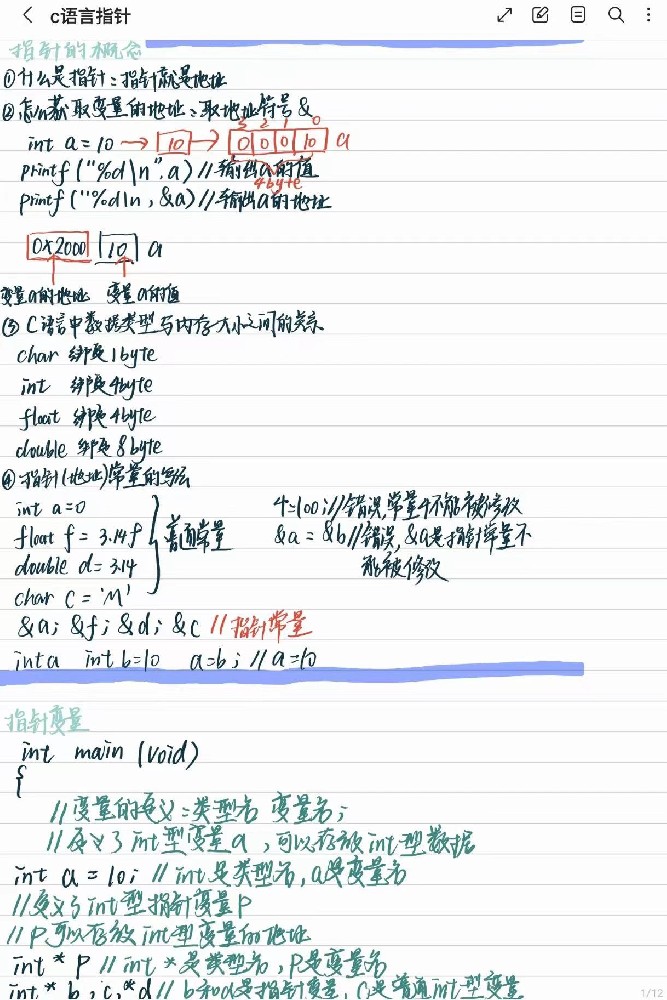 c语言指针
指针的概念
①什么是指针:指针就是地址
②怎么获取变量的地址:取地址符号&
3 2 1 0
int a = 10 → 10 → 0 0 0 10 a
printf("%d\n",a) //输出a的值
4byte
printf("%d\n, &a) //输出a的地址
0x2000 10 a
变量a的地址 变量a的值
③C语言中数据类型与内存大小之间的关系
char 绑定1byte
int 绑定4byte
float 绑定4byte
double 绑定8byte
④指针(地址)常量的写法
int a=0
4=100; //错误,常量4不能被修改
float f = 3.14f
普通常量
&a = &b //错误,&a是指针常量不
double d=3.14
能被修改
char c = 'M'
&a; &f; &d; &c //指针常量
int a int b=10 a=b; // a=10
指针变量
int main (void)
{
//变量的定义:类型名 变量名;
//定义了int型变量a,可以存放int型数据
int a = 10; // int是类型名,a是变量名
//定义了int型指针变量p
//P可以存放int型变量的地址
int * P // int *是类型名,P是变量名
int * b, c, *d // b和d是指针变量,c是普通int型变量
1/12